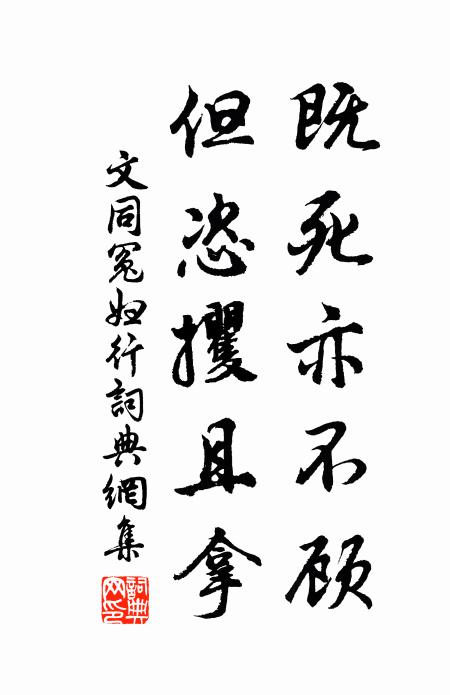 既死亦不顾
但恣攫且拿
文同冤妇行詞典網集
詞典网印